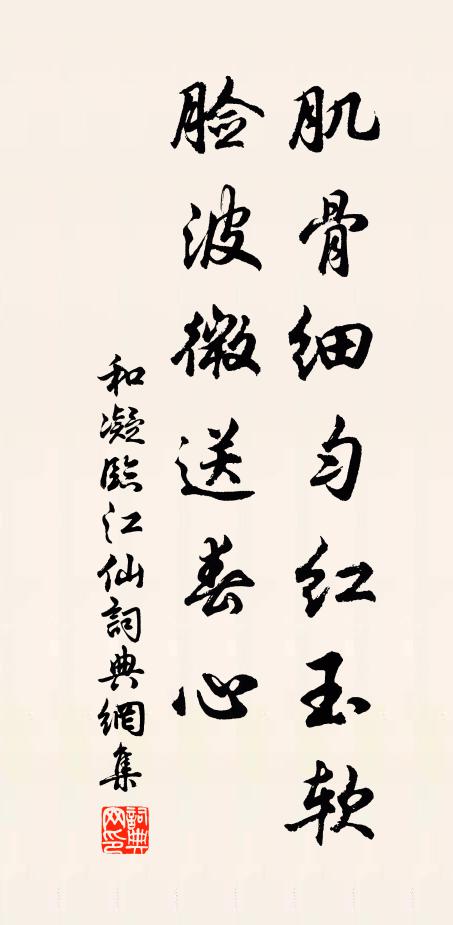 肌骨细匀红玉软
脸波微送春心
和凝臨江仙詞典網集
詞典网印